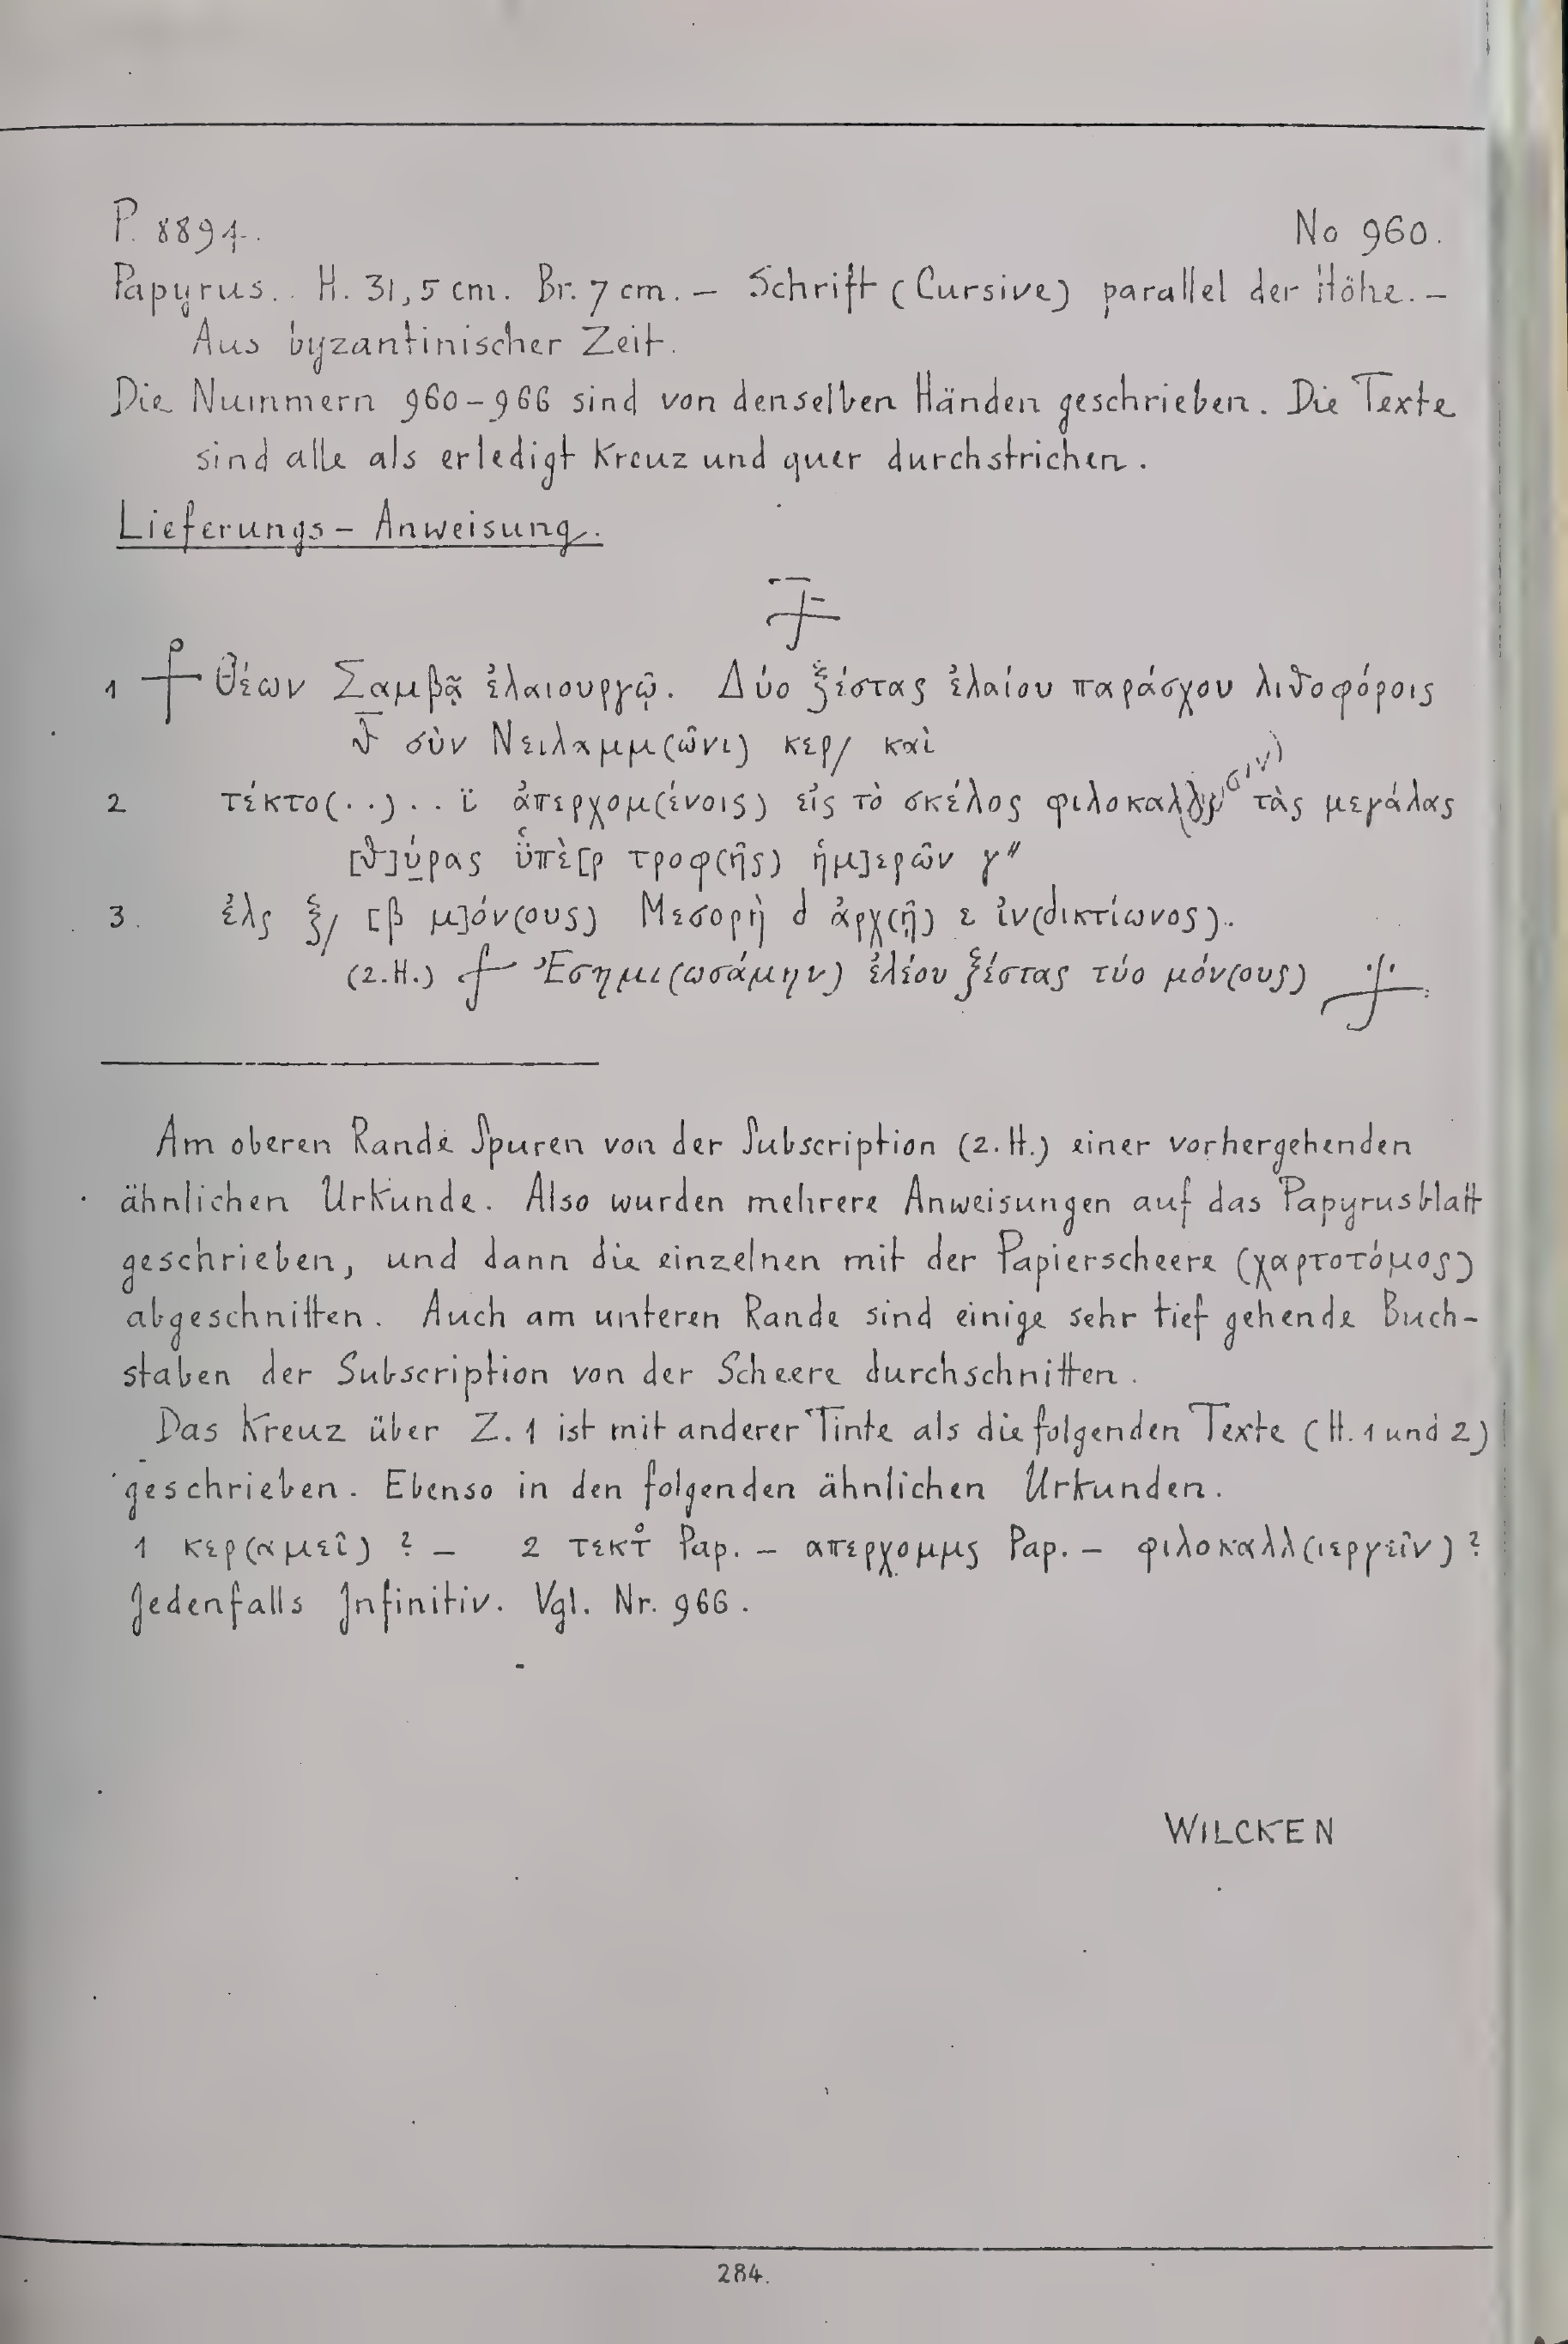 P. 8894. No 960.
Papyrus. H. 31,5 cm. Br. 7 cm. – Schrift (Cursive) parallel der Höhe. –
Aus byzantinischer Zeit.
Die Nummern 960–966 sind von denselben Händen geschrieben. Die Texte
sind alle als erledigt Kreuz und quer durchstrichen.
Lieferungs-Anweisung.
1 Θέων Σαμβᾷ ἐλαιουργῷ. Δύο ξέστας ἐλαίου παράσχου λιθοφόροις
θ̅ σὺν Νειλαμμ(ῶνι) κερ/ καὶ
2 τέκτο(..)..ϊ ἀπερχομ(ένοις) εἰς τὸ σκέλος τὰς μεγάλας
[θ]ύρας ὑ̈πὲ[ρ τροφ(ῆς) ἡμ]ερῶν γ″
3. ἐλς ξ/ [β μ]όν(ους) Μεσορὴ d ἀρχ(ῇ) ε ἰν(δικτίωνος).
(2.H.) Ἐσημι(ωσάμην) ἐλέου ξέστας τύο μόν(ους)
Am oberen Rande Spuren von der Subscription (2.H.) einer vorhergehenden
ähnlichen Urkunde. Also wurden mehrere Anweisungen auf das Papyrusblatt
geschrieben, und dann die einzelnen mit der Papierscheere (χαρτοτόμος)
abgeschnitten. Auch am unteren Rande sind einige sehr tief gehende Buch-
staben der Subscription von der Scheere durchschnitten.
Das Kreuz über Z. 1 ist mit anderer Tinte als die folgenden Texte (H. 1 und 2)
geschrieben. Ebenso in den folgenden ähnlichen Urkunden.
1 κερ(αμεῖ) ? – 2 τεκτο Pap. – απερχομμς Pap. – φιλοκαλλ(ιεργεῖν) ?
Jedenfalls Infinitiv. Vgl. Nr. 966.
WILCKEN
284.